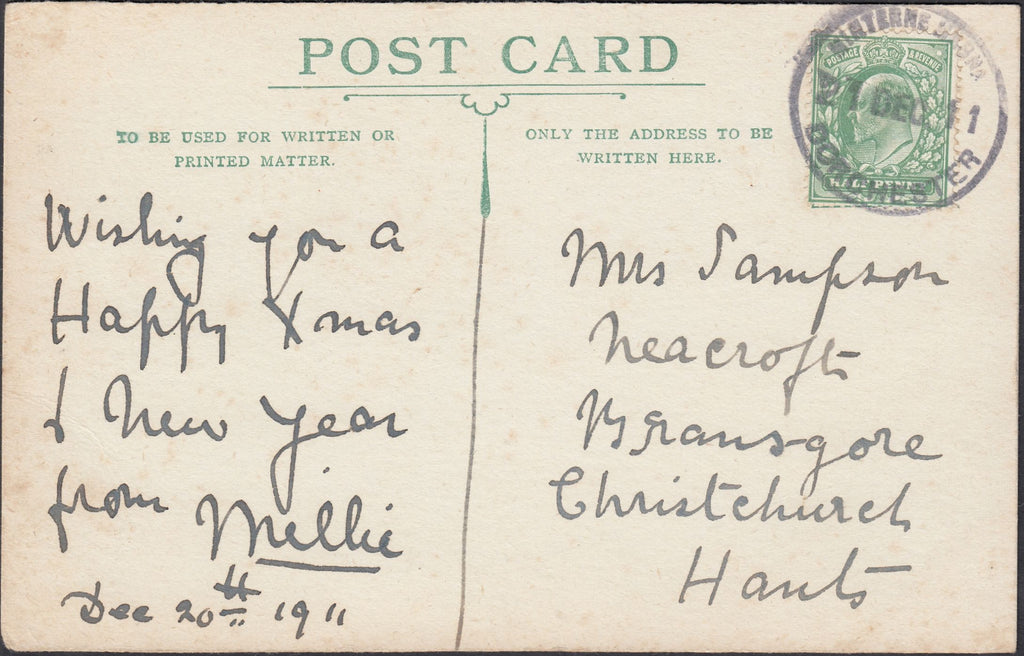 POST CARD
TO BE USED FOR WRITTEN OR
PRINTED MATTER.
ONLY THE ADDRESS TO BE
WRITTEN HERE.
POSTAGE & REVENUE
HALF PENNY
DEC 11
DORCHESTER
Wishing you a
Happy Xmas
& New Year
from Millie
Dec 20th 1911
Mrs Sampson
Neacroft
Bransgore
Christchurch
Hants